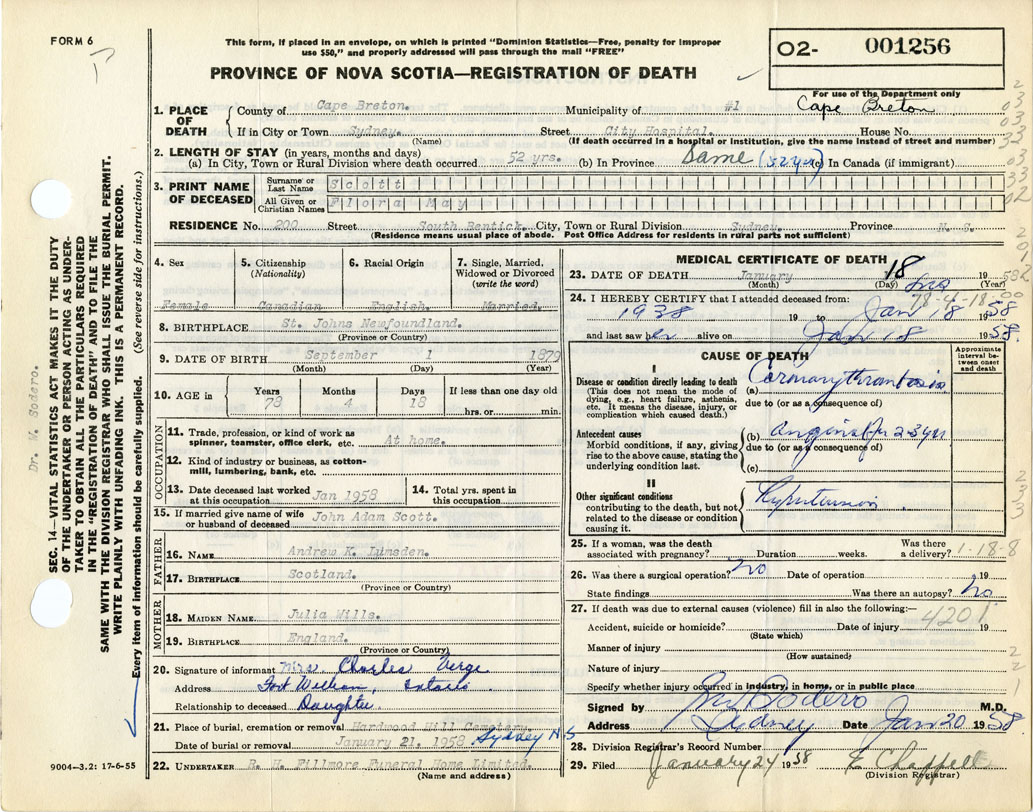 FORM 6
This form, if placed in an envelope, on which is printed "Dominion Statistics—Free, penalty for improper
use $50," and properly addressed will pass through the mail "FREE"
PROVINCE OF NOVA SCOTIA—REGISTRATION OF DEATH
02- 001256
For use of the Department only
Cape Breton
1. PLACE OF DEATH
County of Cape Breton. Municipality of #1
If in City or Town Sydney. Street City Hospital. House No.
(Name) (If death occurred in a hospital or institution, give the name instead of street and number)
2. LENGTH OF STAY (in years, months and days)
(a) In City, Town or Rural Division where death occurred 52 yrs. (b) In Province Same (52 yrs) (c) In Canada (if immigrant)
3. PRINT NAME OF DECEASED
Surname or Last Name Scott
All Given or Christian Names Flora May
RESIDENCE No. 200 Street South Bentick. City, Town or Rural Division Sydney. Province N. S.
(Residence means usual place of abode. Post Office Address for residents in rural parts not sufficient)
4. Sex 5. Citizenship (Nationality) 6. Racial Origin 7. Single, Married, Widowed or Divorced (write the word)
Female Canadian English. Married.
8. BIRTHPLACE St. Johns Newfoundland.
(Province or Country)
9. DATE OF BIRTH September 1 1879
(Month) (Day) (Year)
10. AGE in Years Months Days If less than one day old
78 4 18 hrs. or min.
OCCUPATION
11. Trade, profession, or kind of work as spinner, teamster, office clerk, etc. At home.
12. Kind of industry or business, as cotton-mill, lumbering, bank, etc.
13. Date deceased last worked at this occupation Jan 1958 14. Total yrs. spent in this occupation
15. If married give name of wife or husband of deceased John Adam Scott.
FATHER
16. NAME Andrew K. Lumsden.
17. BIRTHPLACE Scotland.
(Province or Country)
MOTHER
18. MAIDEN NAME Julia Wills.
19. BIRTHPLACE England.
(Province or Country)
20. Signature of informant Mrs. Charles Verge
Address Fort William, Ontario.
Relationship to deceased Daughter.
21. Place of burial, cremation or removal Hardwood Hill Cemetery.
Date of burial or removal January 21, 1958 Sydney N S
22. UNDERTAKER R. H. Fillmore Funeral Home Limited.
(Name and address)
MEDICAL CERTIFICATE OF DEATH
23. DATE OF DEATH January 18 19 58
(Month) (Day) (Year)
24. I HEREBY CERTIFY that I attended deceased from:
78-4-18-00
1938 19 to Jan 18 1958
and last saw her alive on Jan 18 1958.
CAUSE OF DEATH
Approximate interval between onset and death
I
Disease or condition directly leading to death
(This does not mean the mode of dying, e.g., heart failure, asthenia, etc. It means the disease, injury, or complication which caused death.)
(a) Coronary thrombosis
due to (or as a consequence of)
Antecedent causes
Morbid conditions, if any, giving rise to the above cause, stating the underlying condition last.
(b) Angina
due to (or as a consequence of)
(c)
II
Other significant conditions
contributing to the death, but not related to the disease or condition causing it.
Hypertension
25. If a woman, was the death associated with pregnancy? Duration weeks. Was there a delivery? 1-18-8
26. Was there a surgical operation? No Date of operation 19
State findings Was there an autopsy? No
27. If death was due to external causes (violence) fill in also the following:—
4201
Accident, suicide or homicide? Date of injury 19
(State which)
Manner of injury
(How sustained)
Nature of injury
Specify whether injury occurred in industry, in home, or in public place
Signed by Sodero M.D.
Address Sydney Date Jan 20 1958
28. Division Registrar's Record Number
29. Filed January 24 1958 E Chappell
(Division Registrar)
9004—3.2: 17-6-55
SEC. 14—VITAL STATISTICS ACT MAKES IT THE DUTY
OF THE UNDERTAKER OR PERSON ACTING AS UNDER-
TAKER TO OBTAIN ALL THE PARTICULARS REQUIRED
IN THE "REGISTRATION OF DEATH" AND TO FILE THE
SAME WITH THE DIVISION REGISTRAR WHO SHALL ISSUE THE BURIAL PERMIT.
WRITE PLAINLY WITH UNFADING INK. THIS IS A PERMANENT RECORD.
Every item of information should be carefully supplied. (See reverse side for instructions.)
Dr. W. Sodero.